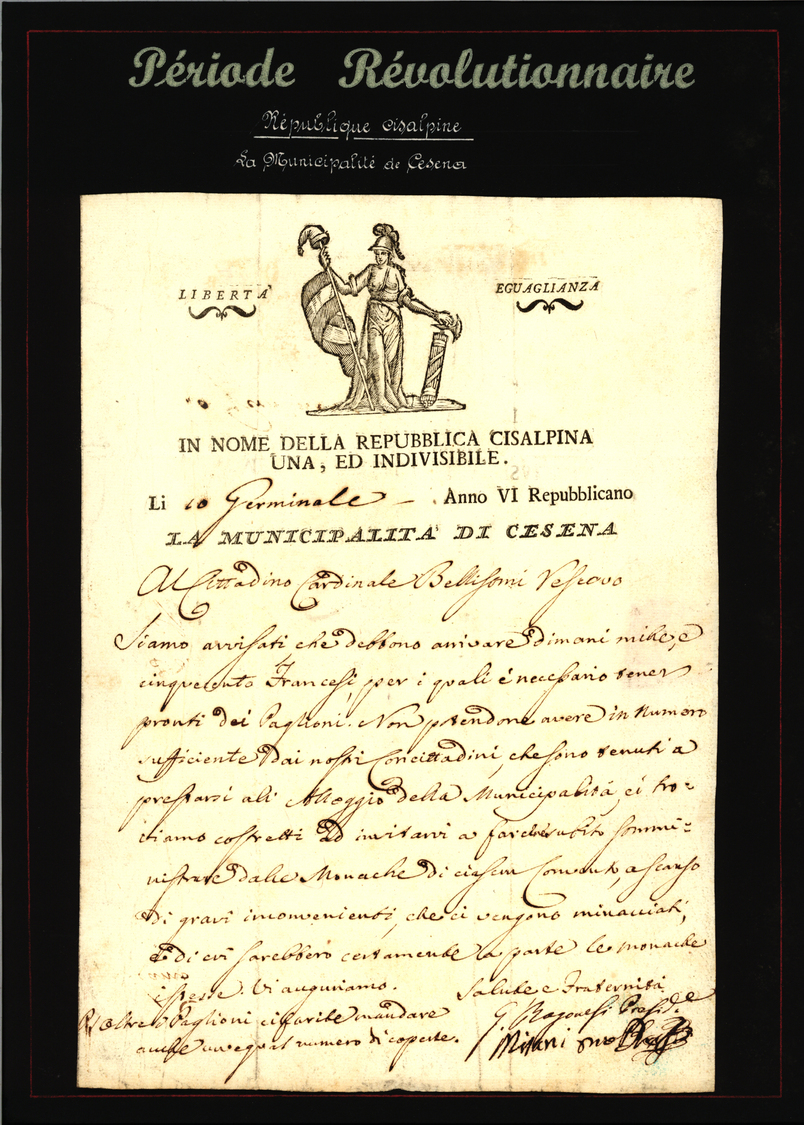 Période Révolutionnaire
République cisalpine
La Municipalité de Cesena
LIBERTA' EGUAGLIANZA
IN NOME DELLA REPUBBLICA CISALPINA
UNA, ED INDIVISIBILE.
Li 10 Germinale Anno VI Repubblicano
LA MUNICIPALITA' DI CESENA
Al Cittadino Cardinale Bellisomi Vescovo
Siamo avvisati, che debbono arrivare dimani mille, e
cinquecento Francesi, per i quali è necessario tener
pronti dei Paglioni. Non potendone avere in numero
sufficiente dai nostri Concittadini, che sono tenuti a
prestarsi all' Alloggio della Municipalità, ci tro-
viamo costretti ad invitarvi a far subito sommi-
nistrare dalle Monache di ciascun Convento, a scanso
di gravi inconvenienti, che ci vengono minacciati,
e di cui sarebbero certamente la parte le monache
istesse. Vi auguriamo. Salute e Fraternità
Oltre i Paglioni ci farete mandare
anche un egual numero di coperte.
Presid.e
Milani